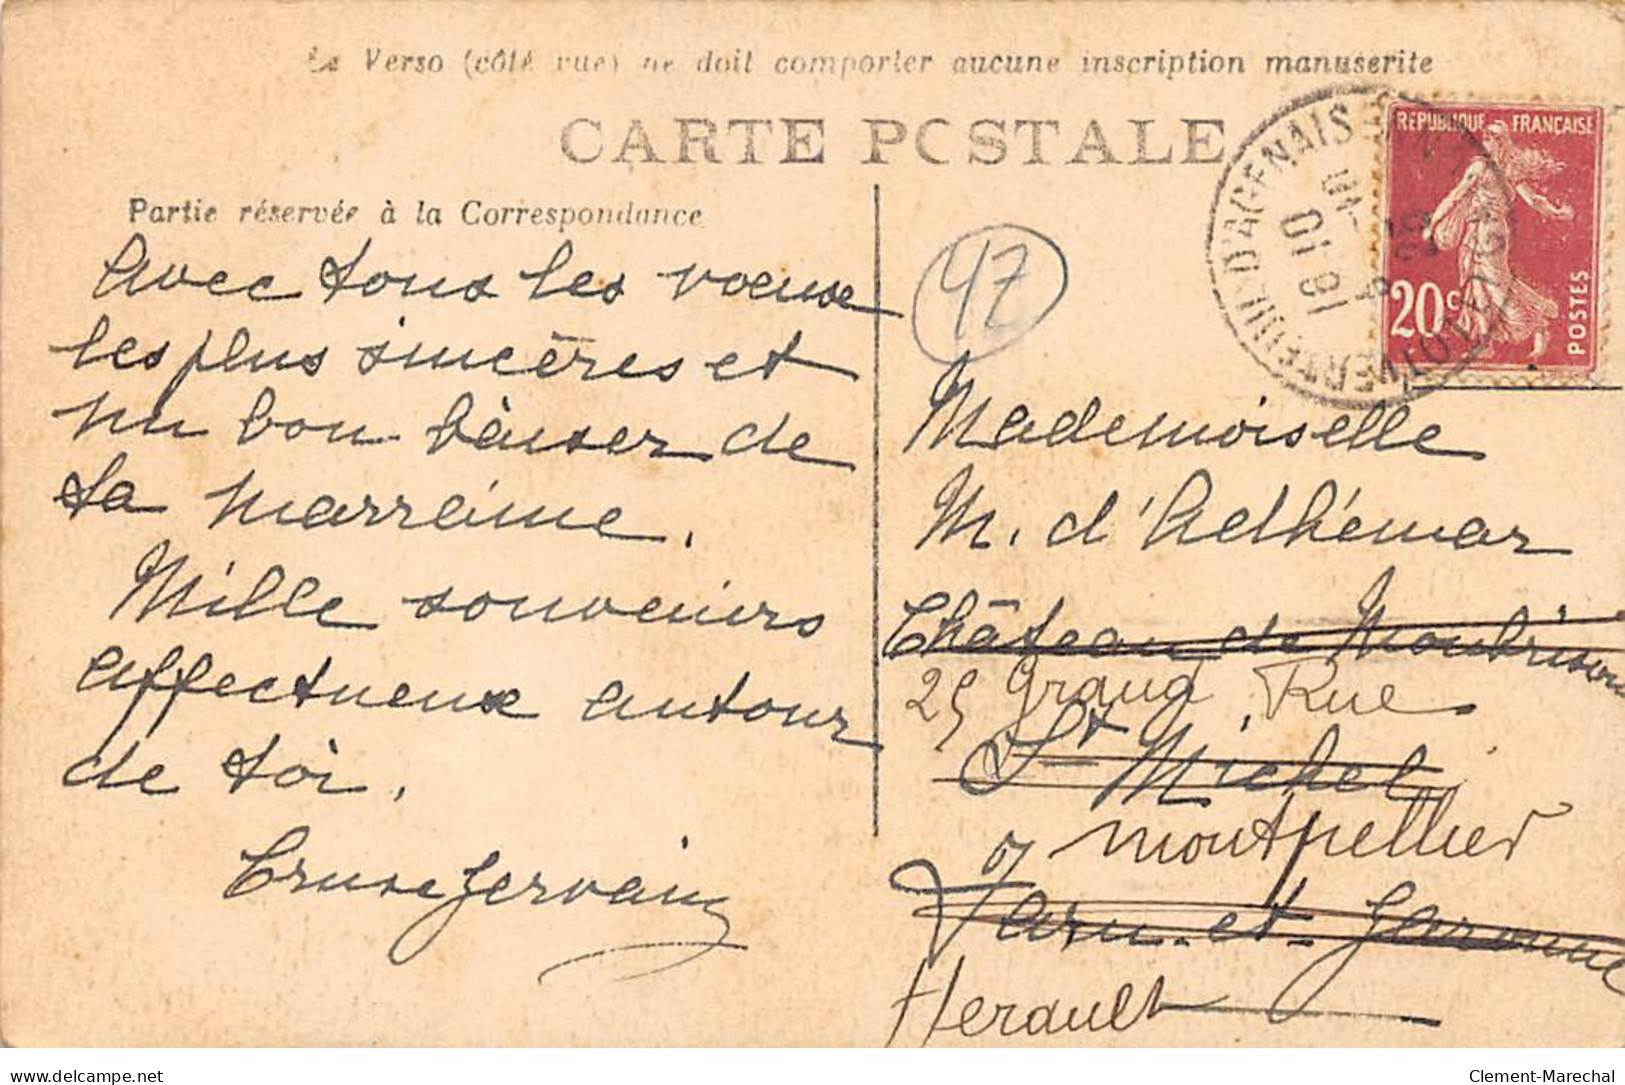 Le Verso (côté vue) ne doit comporter aucune inscription manuscrite
CARTE POSTALE
Partie réservée à la Correspondance
Avec tous les voeux
les plus sincères et
un bon baiser de
ta marraine.
Mille souvenirs
affectueux autour
de toi.
47
RÉPUBLIQUE FRANÇAISE
20c POSTES
VERTEUIL-D'AGENAIS
18 10
LOT-ET-
Mademoiselle
M. d'Adhémar
Château de
25 Grand Rue
St Michel
Montpellier
Tarn-et-Garonne
Herault
delcampe.net
Clement-Marechal